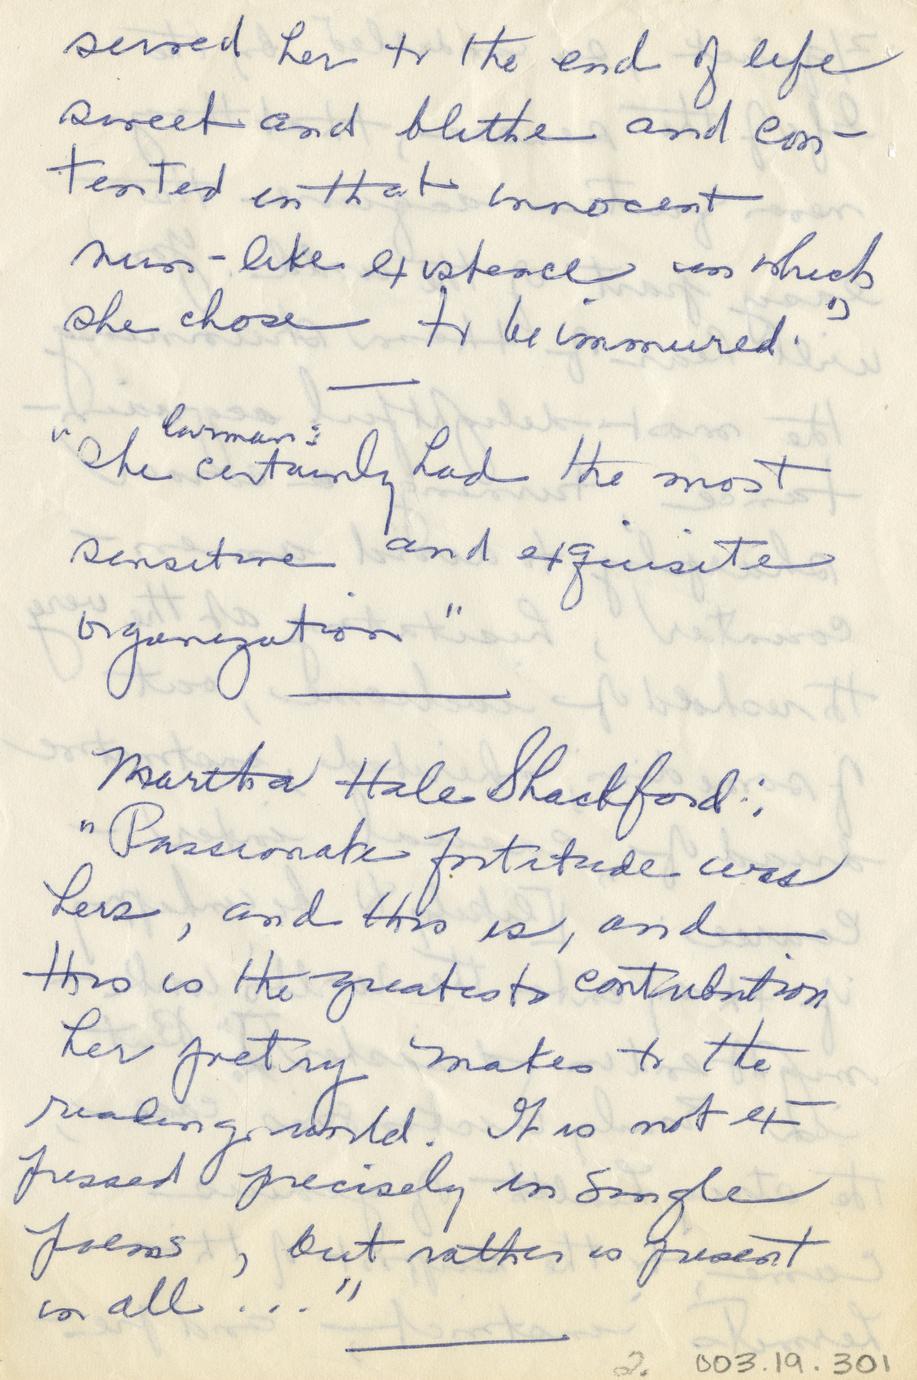 served her to the end of life
sweet and blithe and con-
tented in that innocent
nun-like existence in which
she chose to be immured."
Carman:
"She certainly had the most
sensitive and exquisite
organization"
Martha Hale Shackford:
"Passionate fortitude was
hers, and this is, and
this is the greatest contribution
her poetry makes to the
reading world. It is not ex
pressed precisely in single
poems, but rather is present
in all ..."
2. 003.19.301